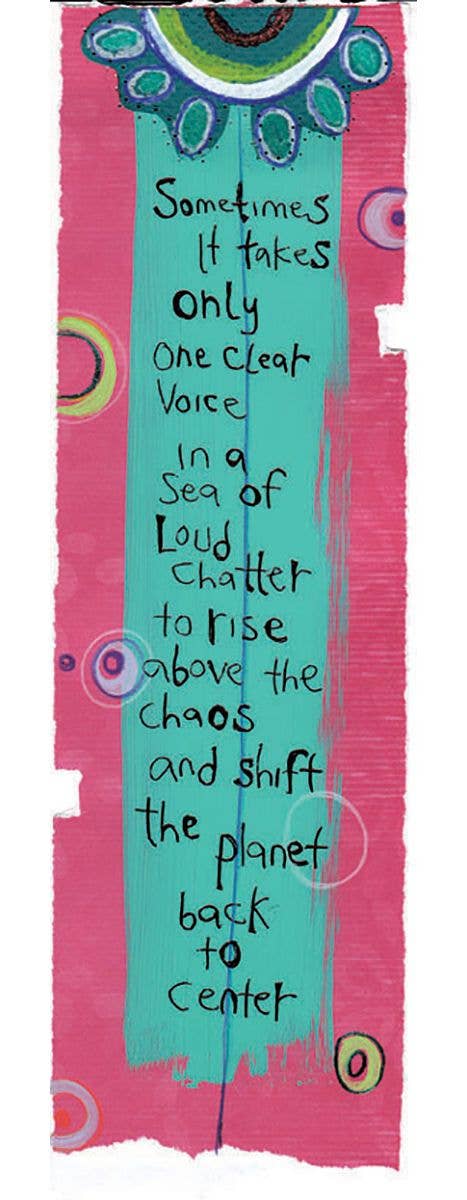 Sometimes
It takes
only
One clear
Voice
in a
Sea of
Loud
Chatter
to rise
above the
chaos
and shift
the planet
back
to
center